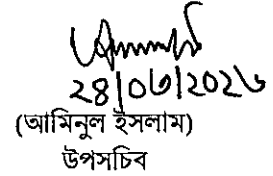 ২৪|০৩|২০২৬
(আমিনুল ইসলাম)
উপসচিব